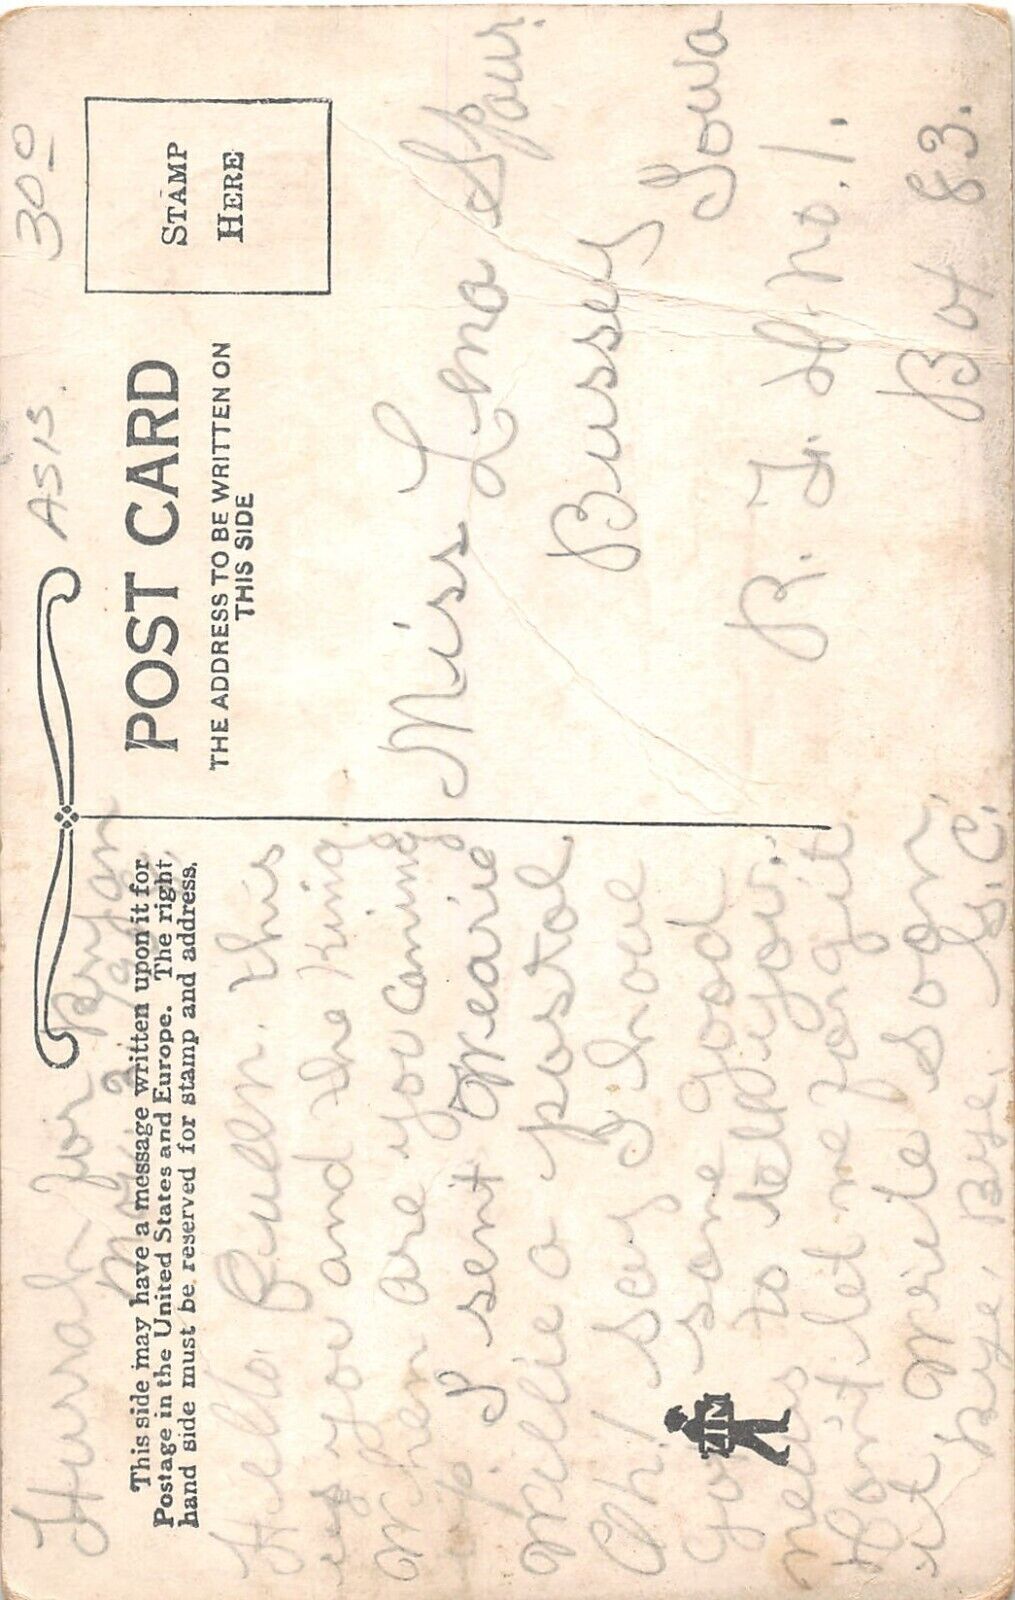 Hurrah for Bryan
This side may have a message written upon it for
Postage in the United States and Europe. The right
hand side must be reserved for stamp and address.
Hello this
is you and the King
When are you coming
up. I sent Mearie
Millie a postal
Oh! Say I have
got some good
news to tell you.
Don't let me forgit
it. Write soon.
Bye, Bye. S.C.
ZIM
30º
ASIS.
POST CARD
THE ADDRESS TO BE WRITTEN ON
THIS SIDE
STAMP
HERE
Miss Lena Spour.
Bussey
Iowa
R. F. D. No. 1.
Box 83.